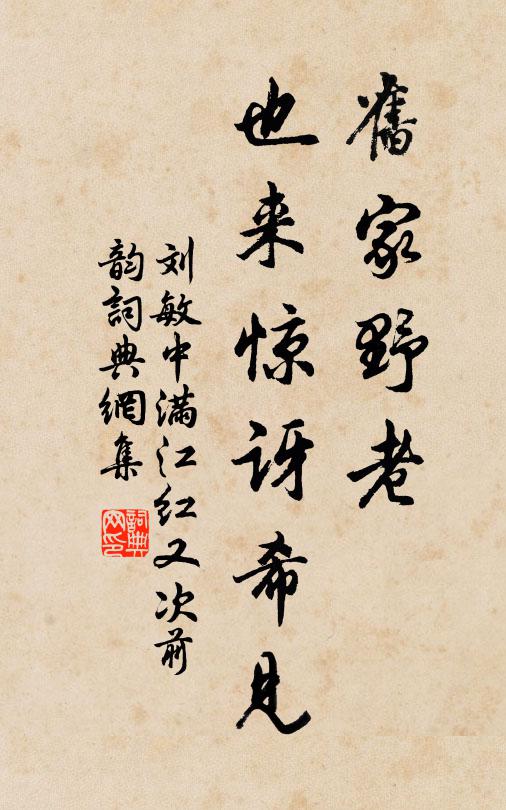 舊家野老
也来惊讶希见
刘敏中满江红又次前
韵詞典網集
詞典
网印